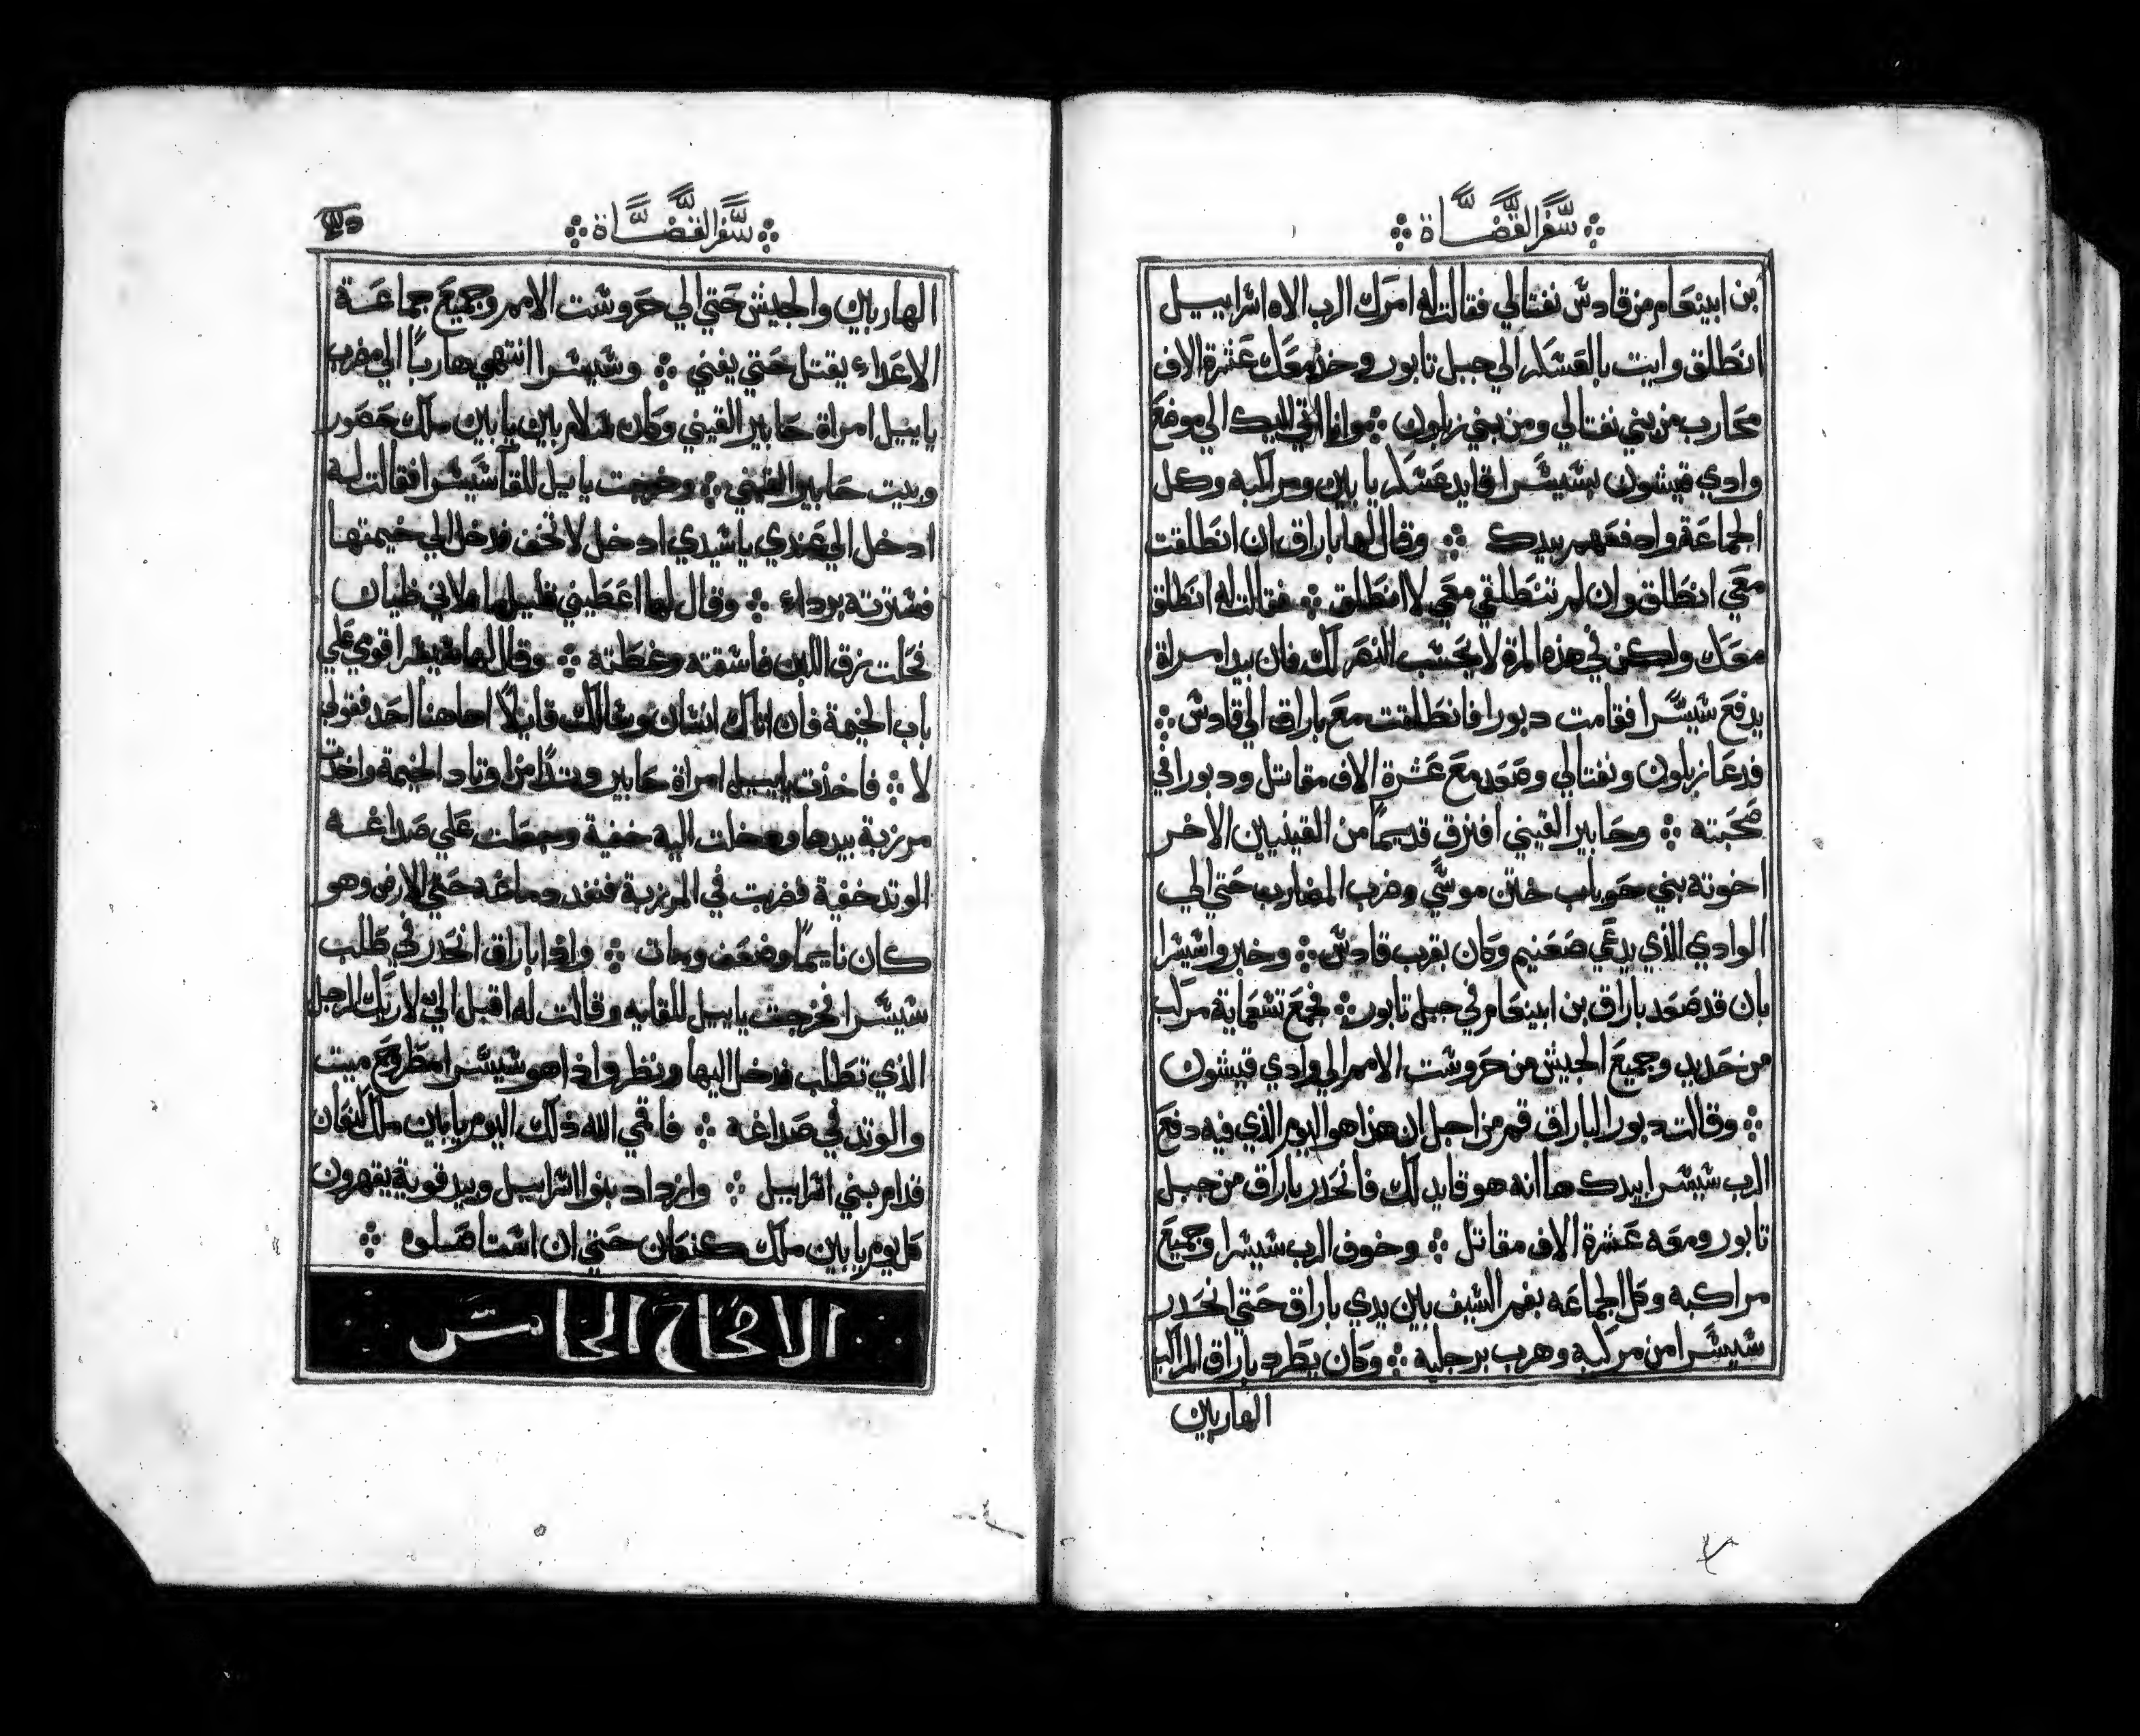 سفر القضاة
بن ابينعام من قادس نفتالي فقالت له امرك الرب الاه اسراييل
انطلق وايت بالعسكر الي جبل تابور وخذ معك عشرة الاف
محارب من بني نفتالي ومن بني زبلون وانا اتي اليك الي موضع
وادي قيشون بسيسرا قايد عسكر يابين ومراكبه وكل
الجماعة وادفعهم بيدك وقال لها باراق ان انطلقت
معي انطلق وان لم تنطلقي معي لا انطلق فقالت له انطلق
معك ولكن في هذه المرة لا يحسب النصر لك فان بيد امراة
يدفع سيسرا فقامت دبورا فانطلقت مع باراق الي قادس
فدعا زبلون ونفتالي وصعد مع عشرة الاف مقاتل ودبورا في
صحبته وحابير القيني افترق قديمًا من القينيين الاخر
اخوته بني حوباب ختن موسي وضرب المضارب حتي الي
الوادي الذي يدعي صعنيم وكان بقرب قادس وخبروا سيسرا
بان قد صعد باراق بن ابينعام في جبل تابور فجمع تسعماية مركب
من حديد وجميع الجيش من حروست الامم الي وادي قيشون
وقالت دبورا لباراق قم من اجل ان هذا هو اليوم الذي فيه دفع
الرب سيسرا بيدك ها انه هو قايد لك فانحدر باراق من جبل
تابور ومعه عشرة الاف مقاتل وخوف الرب سيسرا وجميع
مراكبه وكل الجماعه بفم السيف بين يدي باراق حتي انحدر
سيسرا من مركبه وهرب برجليه وكان يطرد باراق المراكب
الهاربين
سفر القضاة
الهاربين والجيش حتي الي حروست الامم وجميع جماعة
الاعداء يقتل حتي يفني وسيسرا انتهي هاربًا الي مضرب
ياييل امراة حابير القيني وكان سلام بين يابين ملك حصور
وبيت حابير القيني وخرجت ياييل للقا سيسرا فقالت له
ادخل الي عندي يا سيدي ادخل لا تخف فدخل الي خيمتها
فسترته برداء وقال لها اعطيني قليل ما لاني ظمان
فحلت زق اللبن فاسقته وغطته وقال لها سيسرا قومي علي
باب الخيمة فان اتاك انسان وسالك قايلاً اهاهنا احد فقولي
لا فاخذت ياييل امراة حابير وتدًا من اوتاد الخيمة واخذت
مرزبة بيدها ودخلت اليه خفية وجعلت علي صداغه
الوتد خفية فضربت في المرزبة فنفد دماغه حتي الارض وهو
كان نايمًا وضعف ومات واذا باراق انحدر في طلب
سيسرا فخرجت ياييل للقايه وقالت له اقبل الي لاريك الرجل
الذي تطلب فدخل اليها ونظر واذا هو سيسرا مطروح ميت
والوتد في صداغه فاقمي الله ذلك اليوم يابين ملك كنعان
قدام بني اسراييل وازداد بنوا اسراييل وبيد قوية يقهرون
كل يوم يابين ملك كنعان حتي ان استاصلوه
الاصحاح الخامس